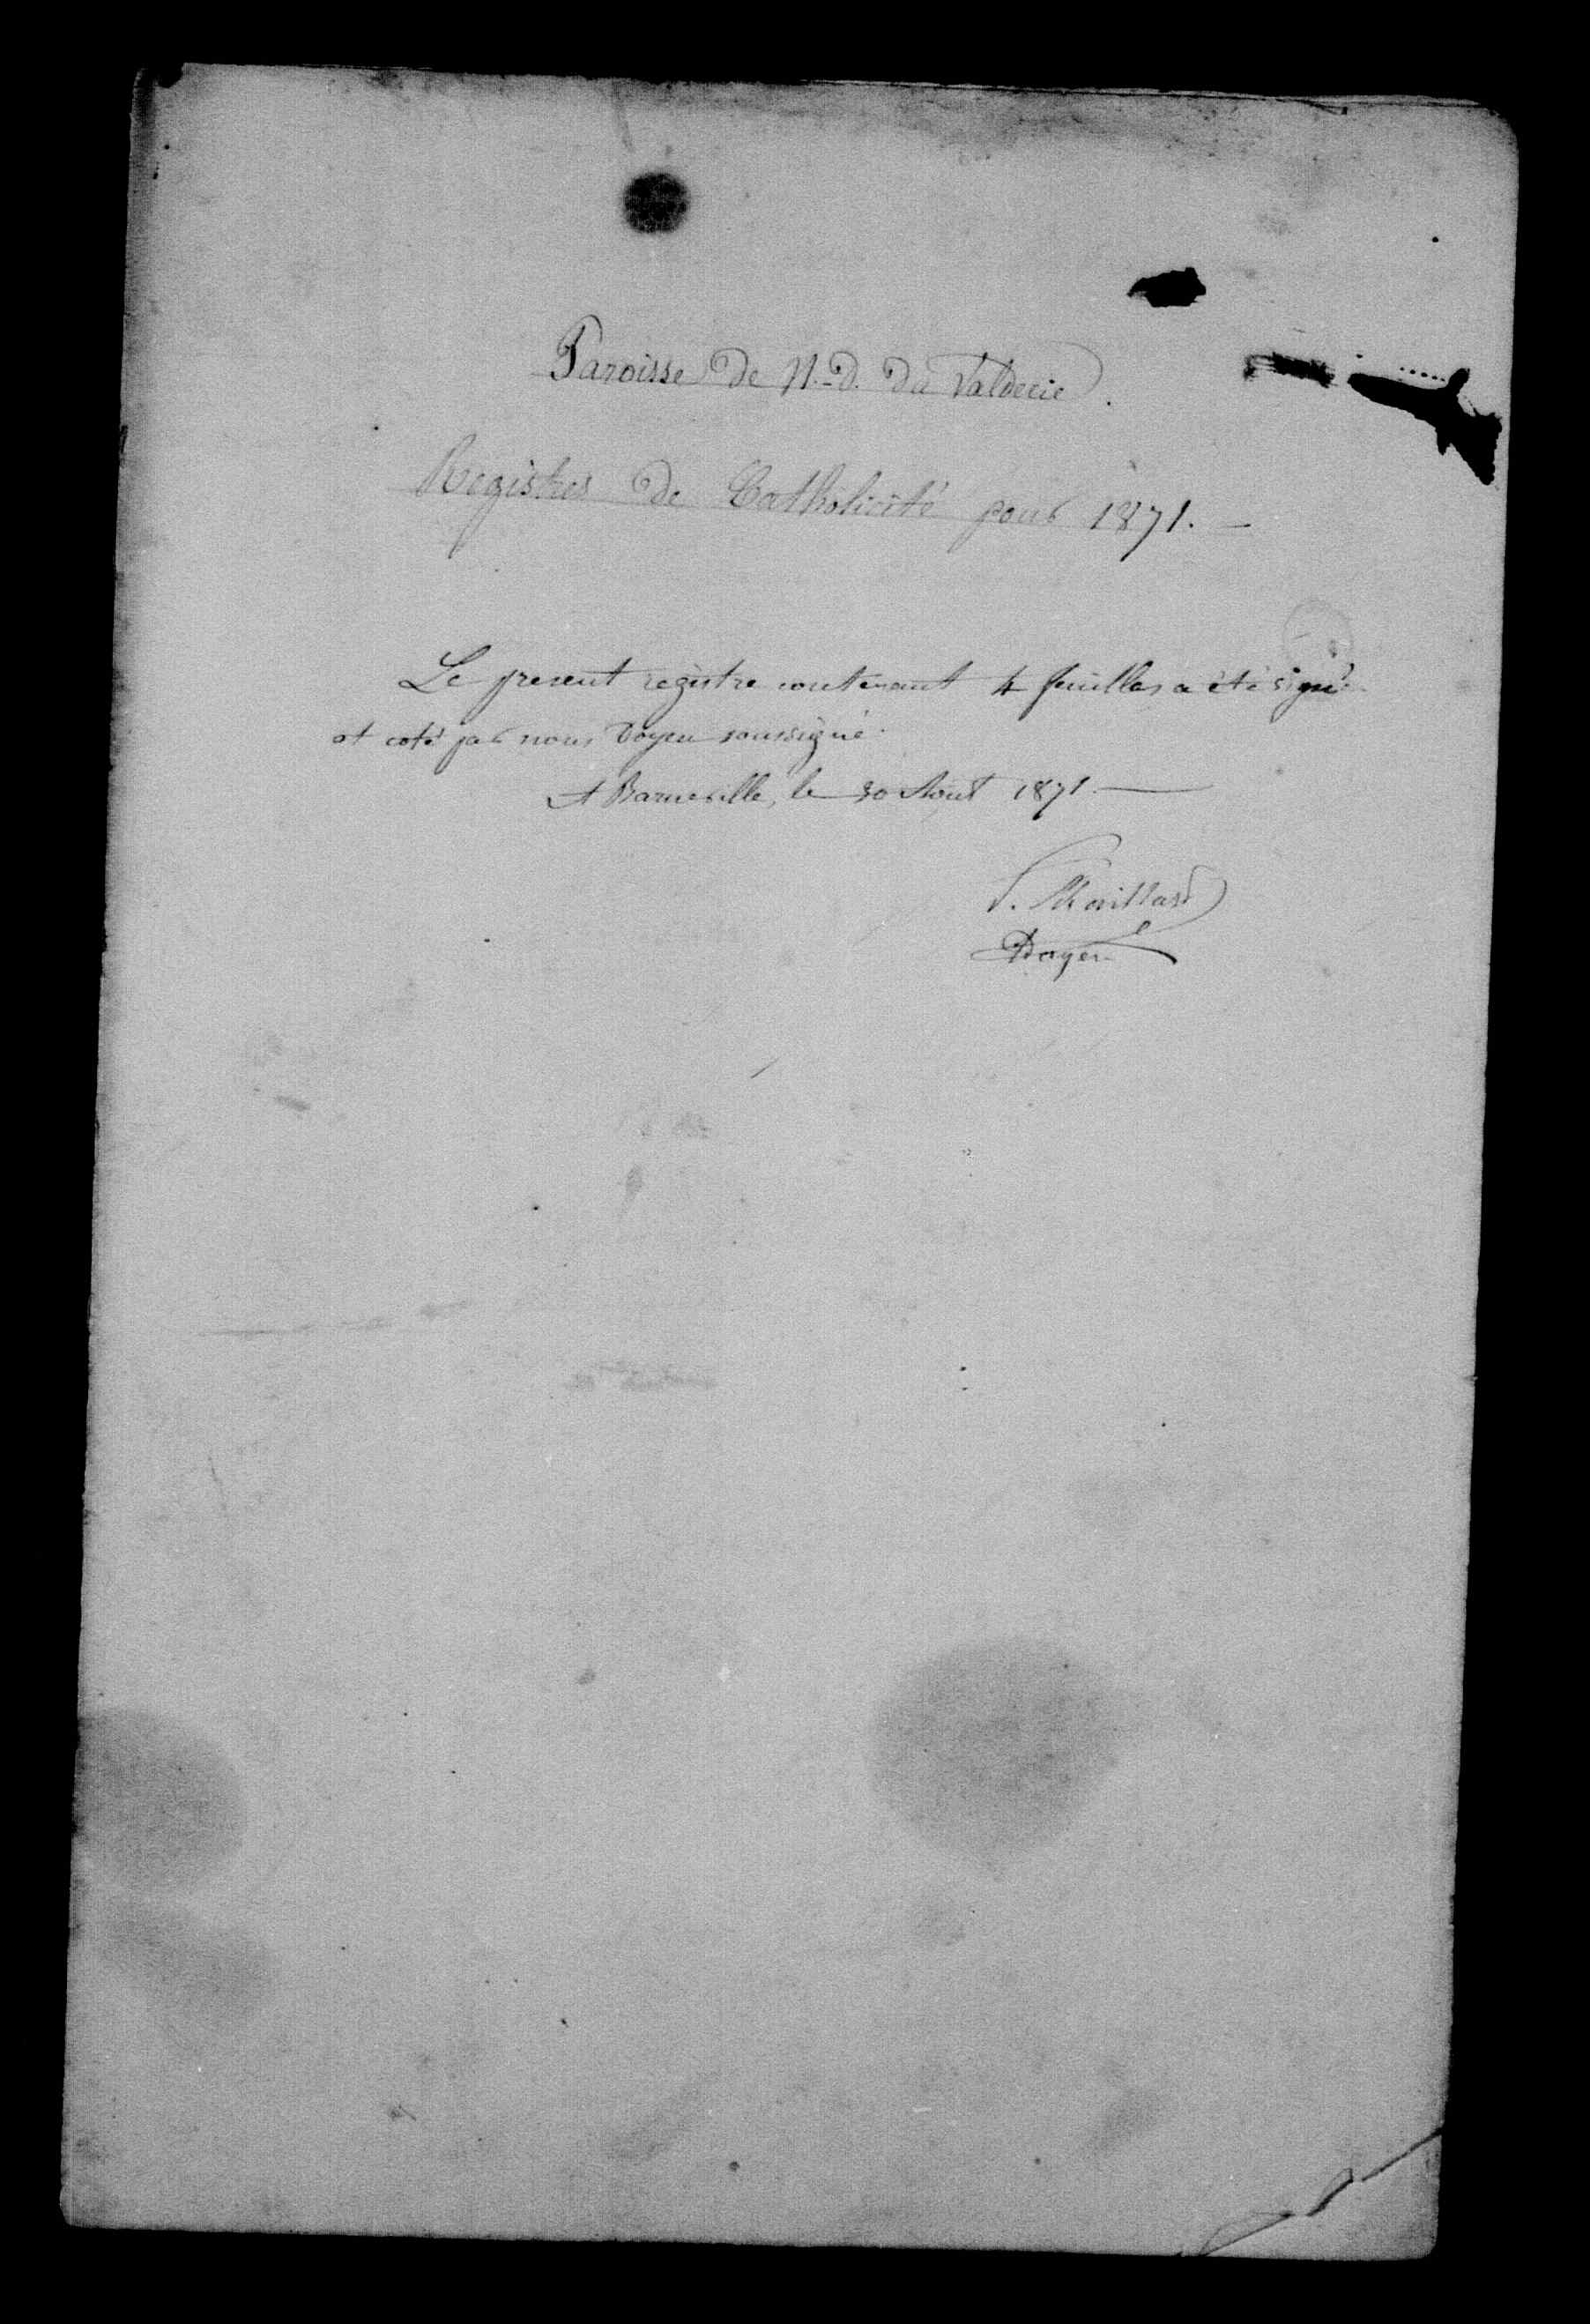 Paroisse de N.-D. du Valdecie.
Registres de Catholicité pour 1871. —
Le present registre contenant 4 feuilles a été signé
et coté par nous Doyen soussigné.
A Barneville, le 30 Août 1871. —
Doyen